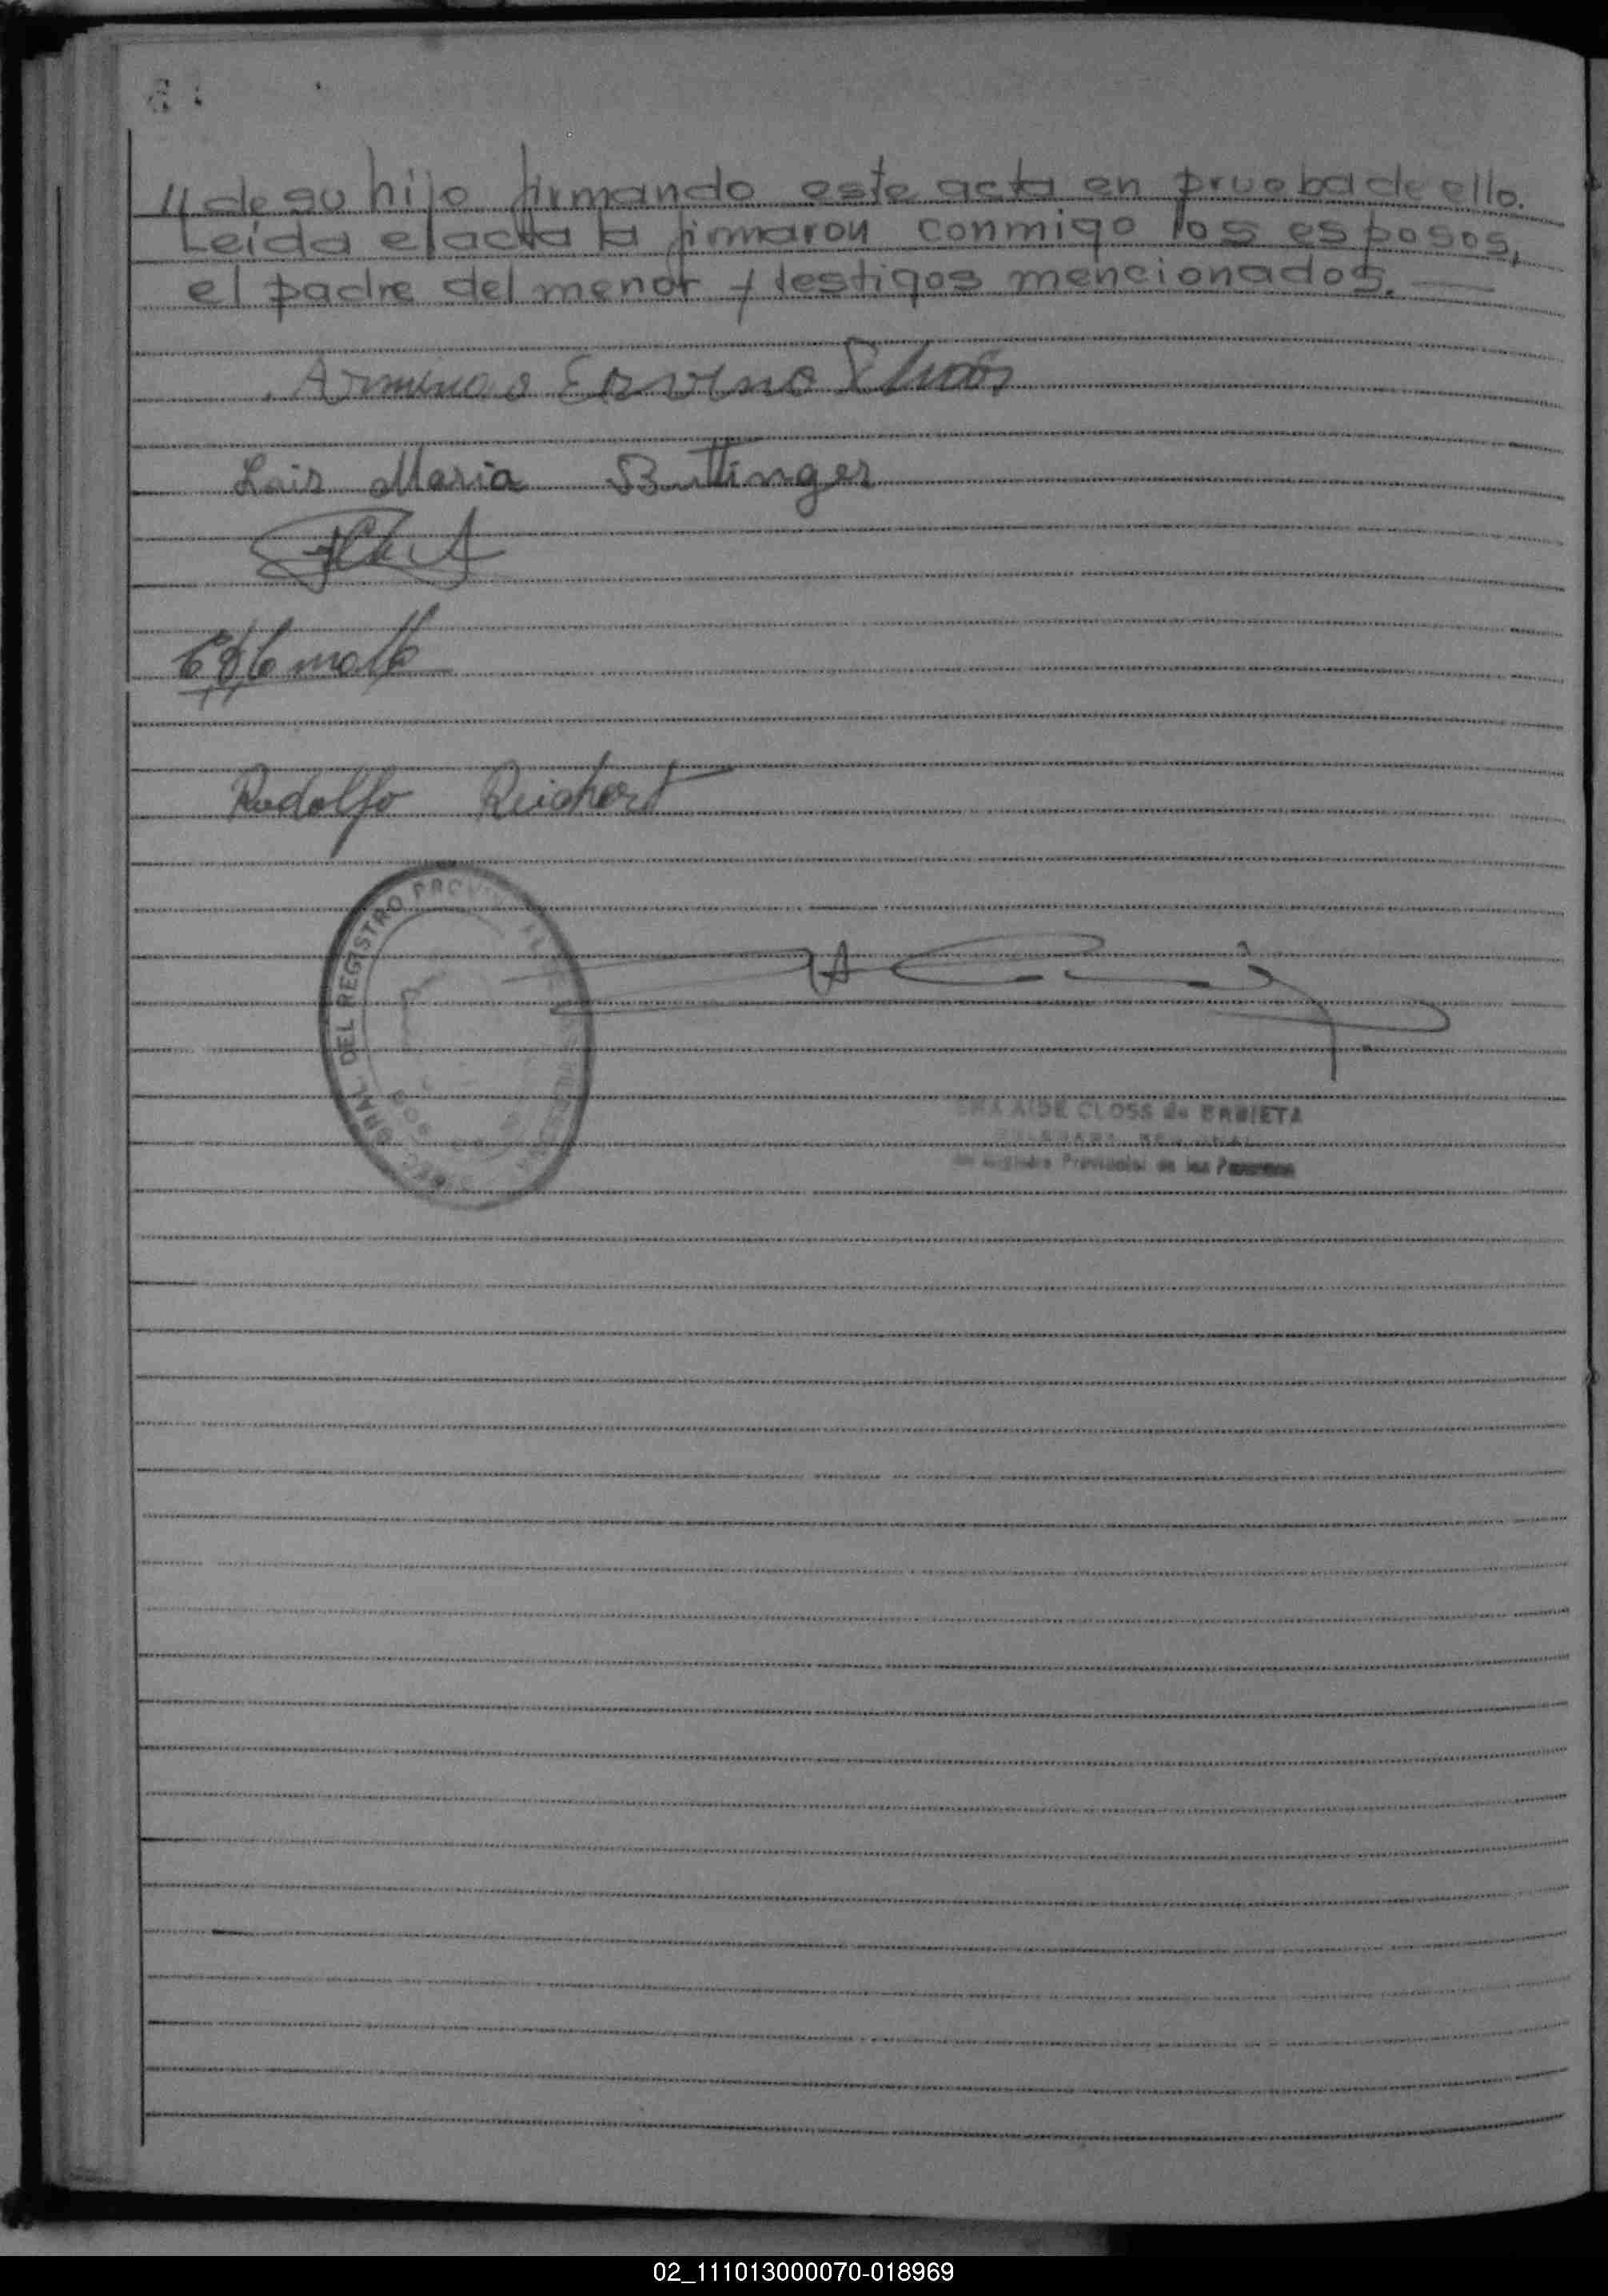 // de su hijo firmando este acta en prueba de ello.
Leida el acta la firmaron conmigo los esposos,
el padre del menor y testigos mencionados. —
Armindo Ervino
Lair Maria Buttinger
Rodolfo Reichert
GRAL DEL REGISTRO PROV
AIDE CLOSS de URBIETA
Provincial de las Personas
02_111013000070-018969